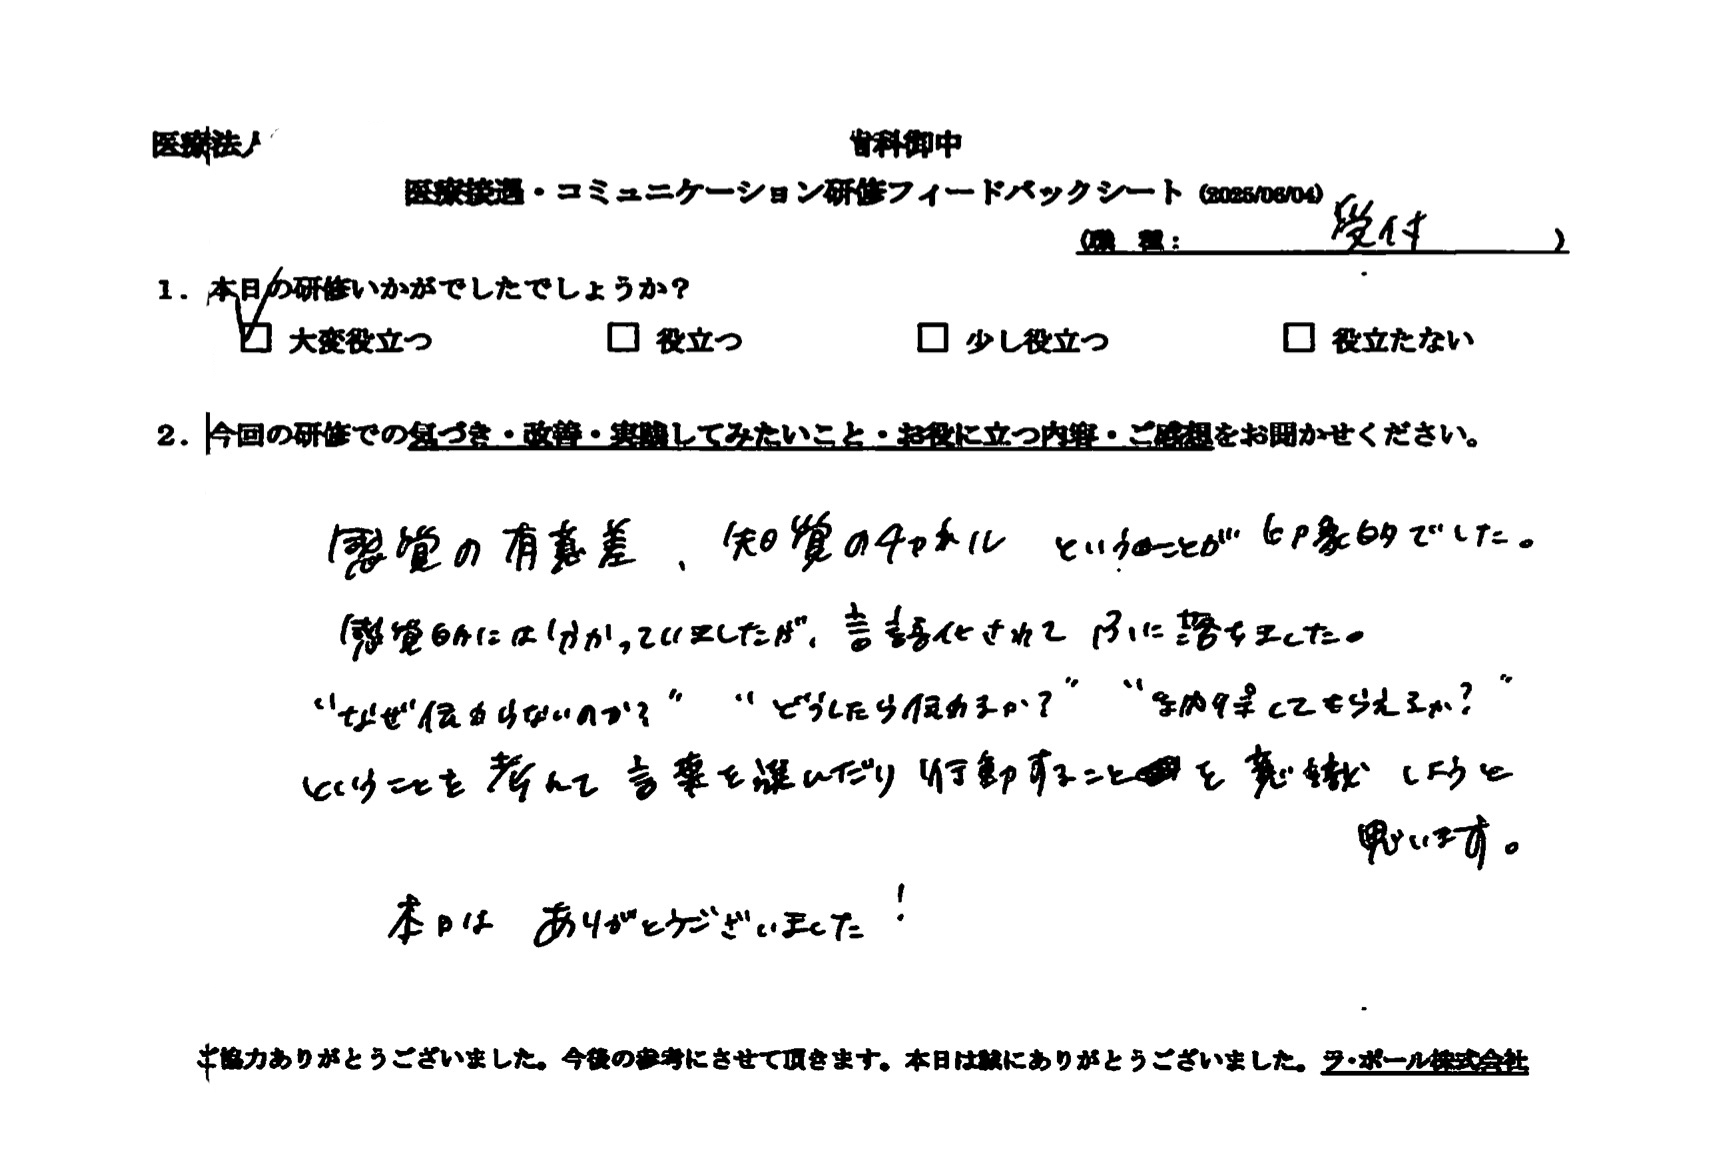 医療法人
歯科御中
医療接遇・コミュニケーション研修フィードバックシート (2025/06/04)
(職 種: 受付 )
1. 本日の研修いかがでしたでしょうか?
☑ 大変役立つ □ 役立つ □ 少し役立つ □ 役立たない
2. 今回の研修での気づき・改善・実践してみたいこと・お役に立つ内容・ご感想をお聞かせください。
感覚の有意差、知覚のチャネル ということが印象的でした。
感覚的には分かっていましたが、言語化されて ふに落ちました。
“なぜ伝わらないのか?” “どうしたら伝わるか?” “納得してもらえるか?”
ということを考えて言葉を選んだり行動することを意識しようと
思います。
本日は ありがとうございました!
ご協力ありがとうございました。今後の参考にさせて頂きます。本日は誠にありがとうございました。ラ・ポール株式会社